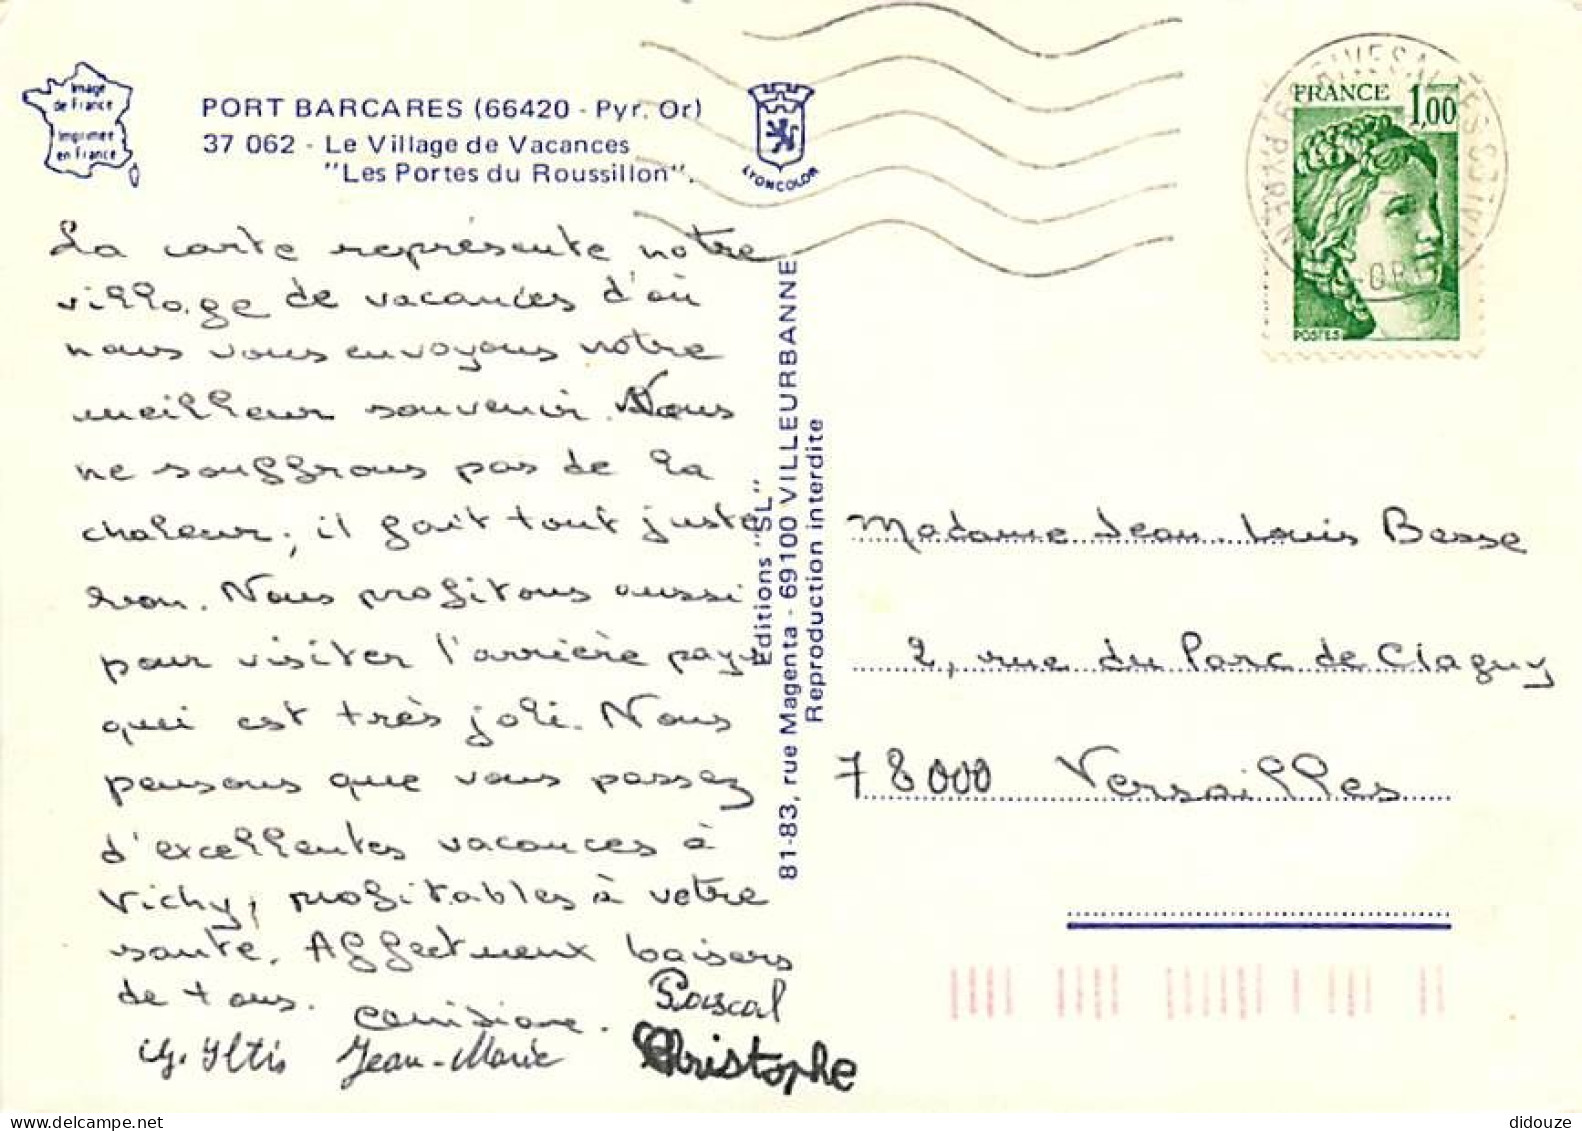 Image
de France
Imprimée
en France
PORT BARCARES (66420 - Pyr. Or)
37 062 - Le Village de Vacances
"Les Portes du Roussillon".
LYONCOLOR
FRANCE 1,00
POSTES
La carte représente notre
village de vacances d'où
nous vous envoyons notre
meilleur souvenir. Nous
ne souffrons pas de la
chaleur, il fait tout juste
bon. Nous profitons aussi
pour visiter l'arrière pays
qui est très joli. Nous
pensons que vous passez
d'excellentes vacances à
Vichy, profitables à votre
santé. Affectueux baisers
de tous.
Pascal
Jean-Marie
Christophe
Editions "SL"
81-83, rue Magenta - 69100 VILLEURBANNE
Reproduction interdite
Madame Jean Louis Besse
2, rue du Parc de Clagny
78000 Versailles
didouze